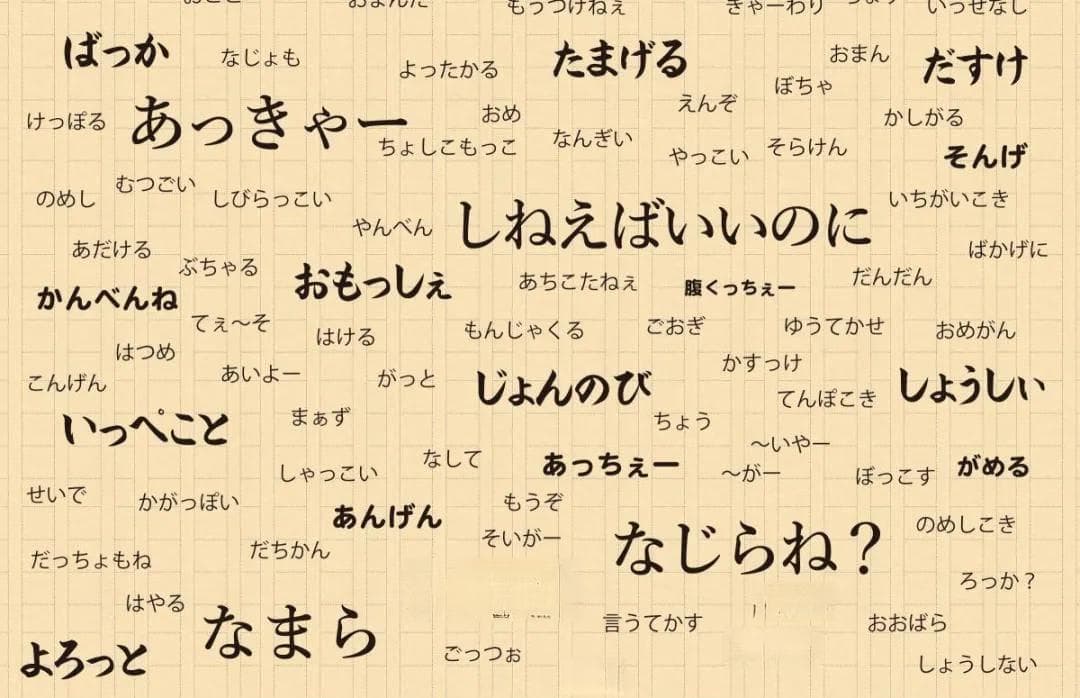 もうつけねえ
きゃーわり
いっせなし
ばっか
なじょも
よったかる
たまげる
おまん
だすけ
ぼちゃ
えんぞ
けっぽる
あっきゃー
おめ
かしがる
ちょしこもっこ
なんぎい
やっこい
そらけん
そんげ
むつごい
のめし
しびらっこい
いちがいこき
やんべん
しねえばいいのに
あだける
ばかげに
ぶちゃる
おもっしぇ
あちこたねぇ
腹くっちぇー
だんだん
かんべんね
てぇ〜そ
はける
もんじゃくる
ごおぎ
ゆうてかせ
おめがん
はつめ
かすっけ
こんげん
あいよー
がっと
じょんのび
てんぽこき
しょうしぃ
いっぺこと
まぁず
ちょう
〜いやー
しゃっこい
なして
あっちぇー
〜がー
ぼっこす
がめる
せいで
かがっぽい
あんげん
もうぞ
そいがー
なじらね？
のめしこき
だっちょもね
だちかん
ろっか？
はやる
なまら
言うてかす
おおばら
よろっと
ごっつぉ
しょうしない